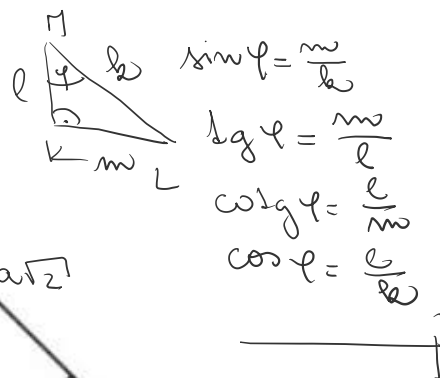 M
l φ k sin φ = m/k
K m L tg φ = m/l
cotg φ = l/m
cos φ = l/k
a√2